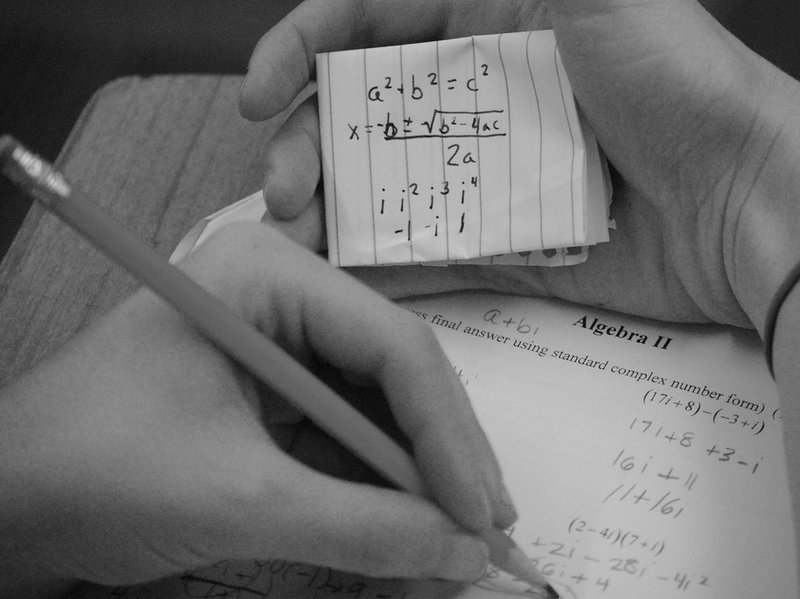 a² + b² = c²
x = -b ± √b² - 4ac
2a
i i² i³ i⁴
-1 -i 1
a+bi
Algebra II
final answer using standard complex number form)
(17i + 8) – (–3 + i)
17i + 8 + 3 - i
16i + 11
11 + 16i
(2 – 4i)(7 + i)
+ 2i - 28i - 4i²